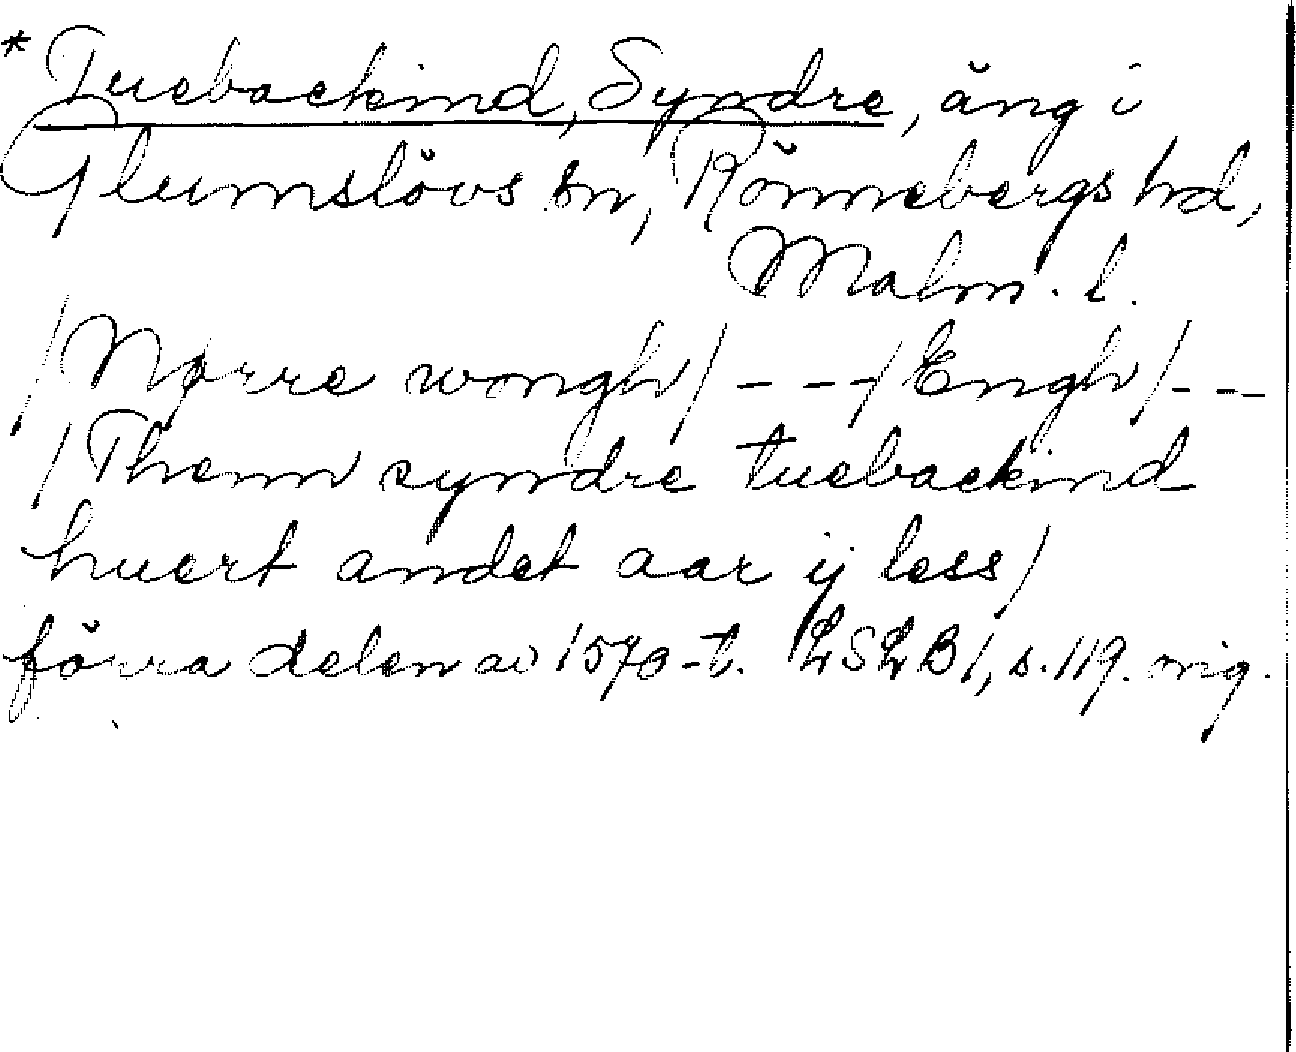 * Tuebackind, Syndre, äng i
Glumslövs sn, Rönnebergs hd,
Malm. l.
/Nørre wongh/ - - -/Engh/- - -
/Thenn syndre tuebackind
huert andet aar ij less/
förra delen av 1570-t. LSLB 1, s. 119. orig.